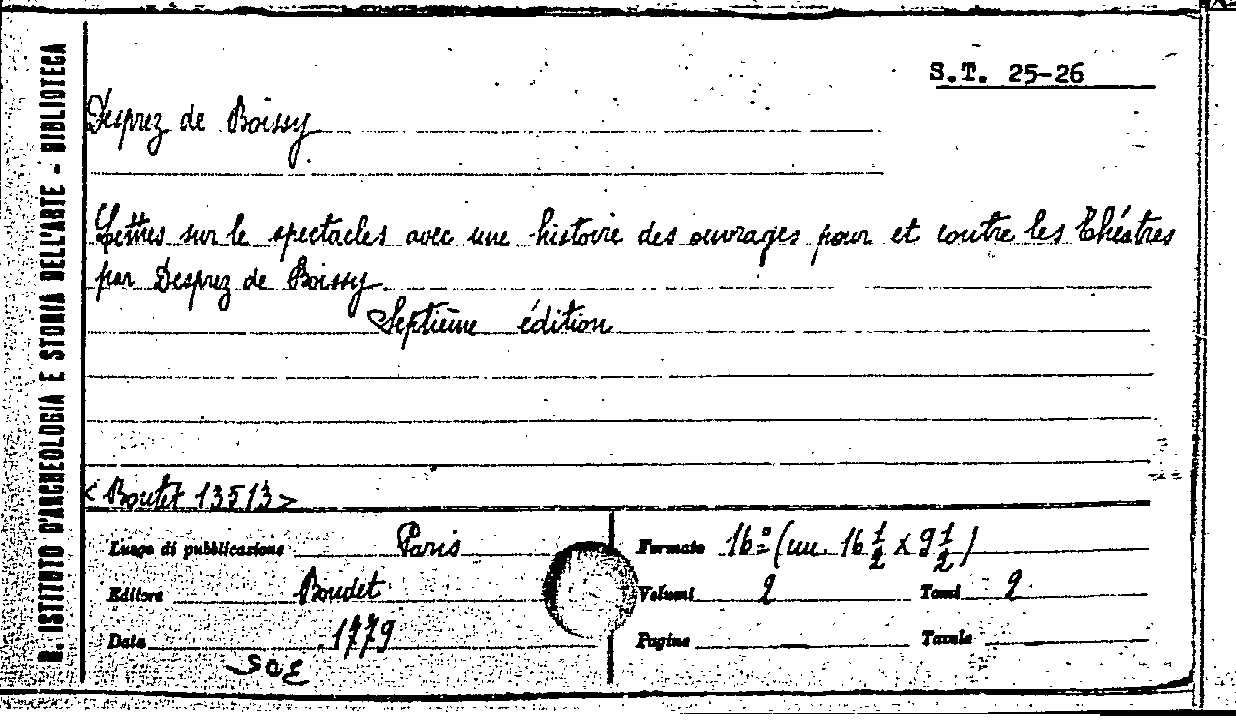 R. ISTITUTO D'ARCHEOLOGIA E STORIA DELL'ARTE - BIBLIOTECA
S.T. 25-26
Desprez de Boissy
Lettres sur le spectacles avec une histoire des ouvrages pour et contre les Théatres
par Desprez de Boissy
Septième édition
<Boutet 13513>
Luogo di pubblicazione Paris
Formato 16º (cm. 16 1/2 x 9 1/2)
Editore Boudet
Volumi 2 Tomi 2
Data 1779
Pagine Tavole